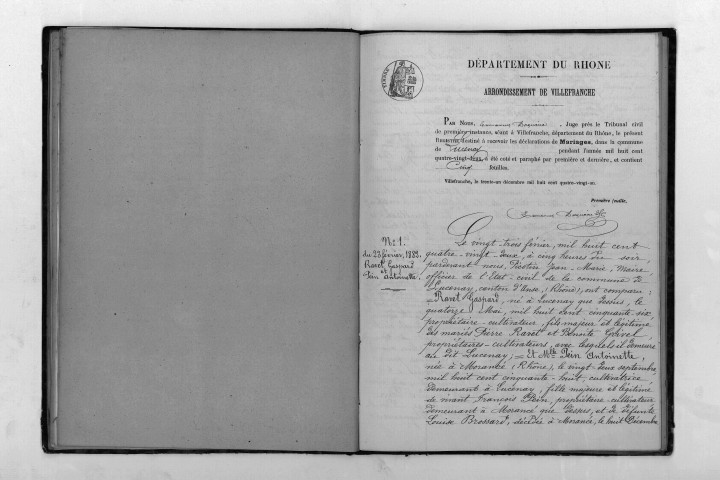 DÉPARTEMENT DU RHONE
ARRONDISSEMENT DE VILLEFRANCHE
PAR NOUS, , Juge près le Tribunal civil
de première instance, séant à Villefranche, département du Rhône, le présent
Registre, destiné à recevoir les déclarations de Mariages, dans la commune
de Lucenay pendant l'année mil huit cent
quatre-vingt-deux, a été coté et paraphé par première et dernière, et contient
Cinq feuilles.
Villefranche, le trente-un décembre mil huit cent quatre-vingt-un.
Première feuille,
N° 1.
du 23 février, 1882.
Ravet Gaspard
et
Pein Antoinette.
Le vingt trois février, mil huit cent
quatre-vingt-deux, à cinq heures du soir,
pardevant nous, Jean-Marie, Maire,
officier de l'Etat-civil de la commune de
Lucenay, canton d'Anse, (Rhône), ont comparu:
= Ravet Gaspard, né à Lucenay que dessus, le
quatorze Mai, mil huit cent cinquante six,
propriétaire-cultivateur, fils majeur et légitime
des mariés Pierre Ravet et Benoite
propriétaires-cultivateurs, avec lesquels il demeure
au dit Lucenay; = Et Mlle Pein Antoinette,
née à Morancé (Rhône), le vingt-deux septembre
mil huit cent cinquante-huit, cultivatrice,
demeurant à Lucenay, fille majeure et légitime
de vivant François Pein, propriétaire-cultivateur
demeurant à Morancé que dessus, et de défunte
Louise Brossard, décédée à Morancé, le huit Décembre